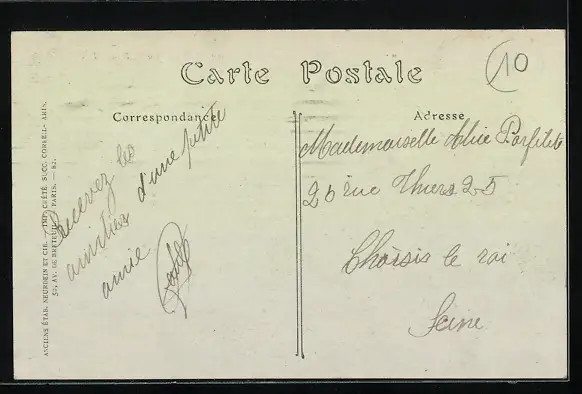 Carte Postale
10
Correspondance
Adresse
Recevez les
amitiés d'une petite
amie
Mademoiselle Alice Parfilete
26 rue Thiers 25
Choisis le roi
Seine
ANCIENS ÉTAB. NEURDEIN ET CIE. IMP. CRÉTÉ SUCC. CORBEIL-PARIS.
52, AV. DE BRETEUIL PARIS.